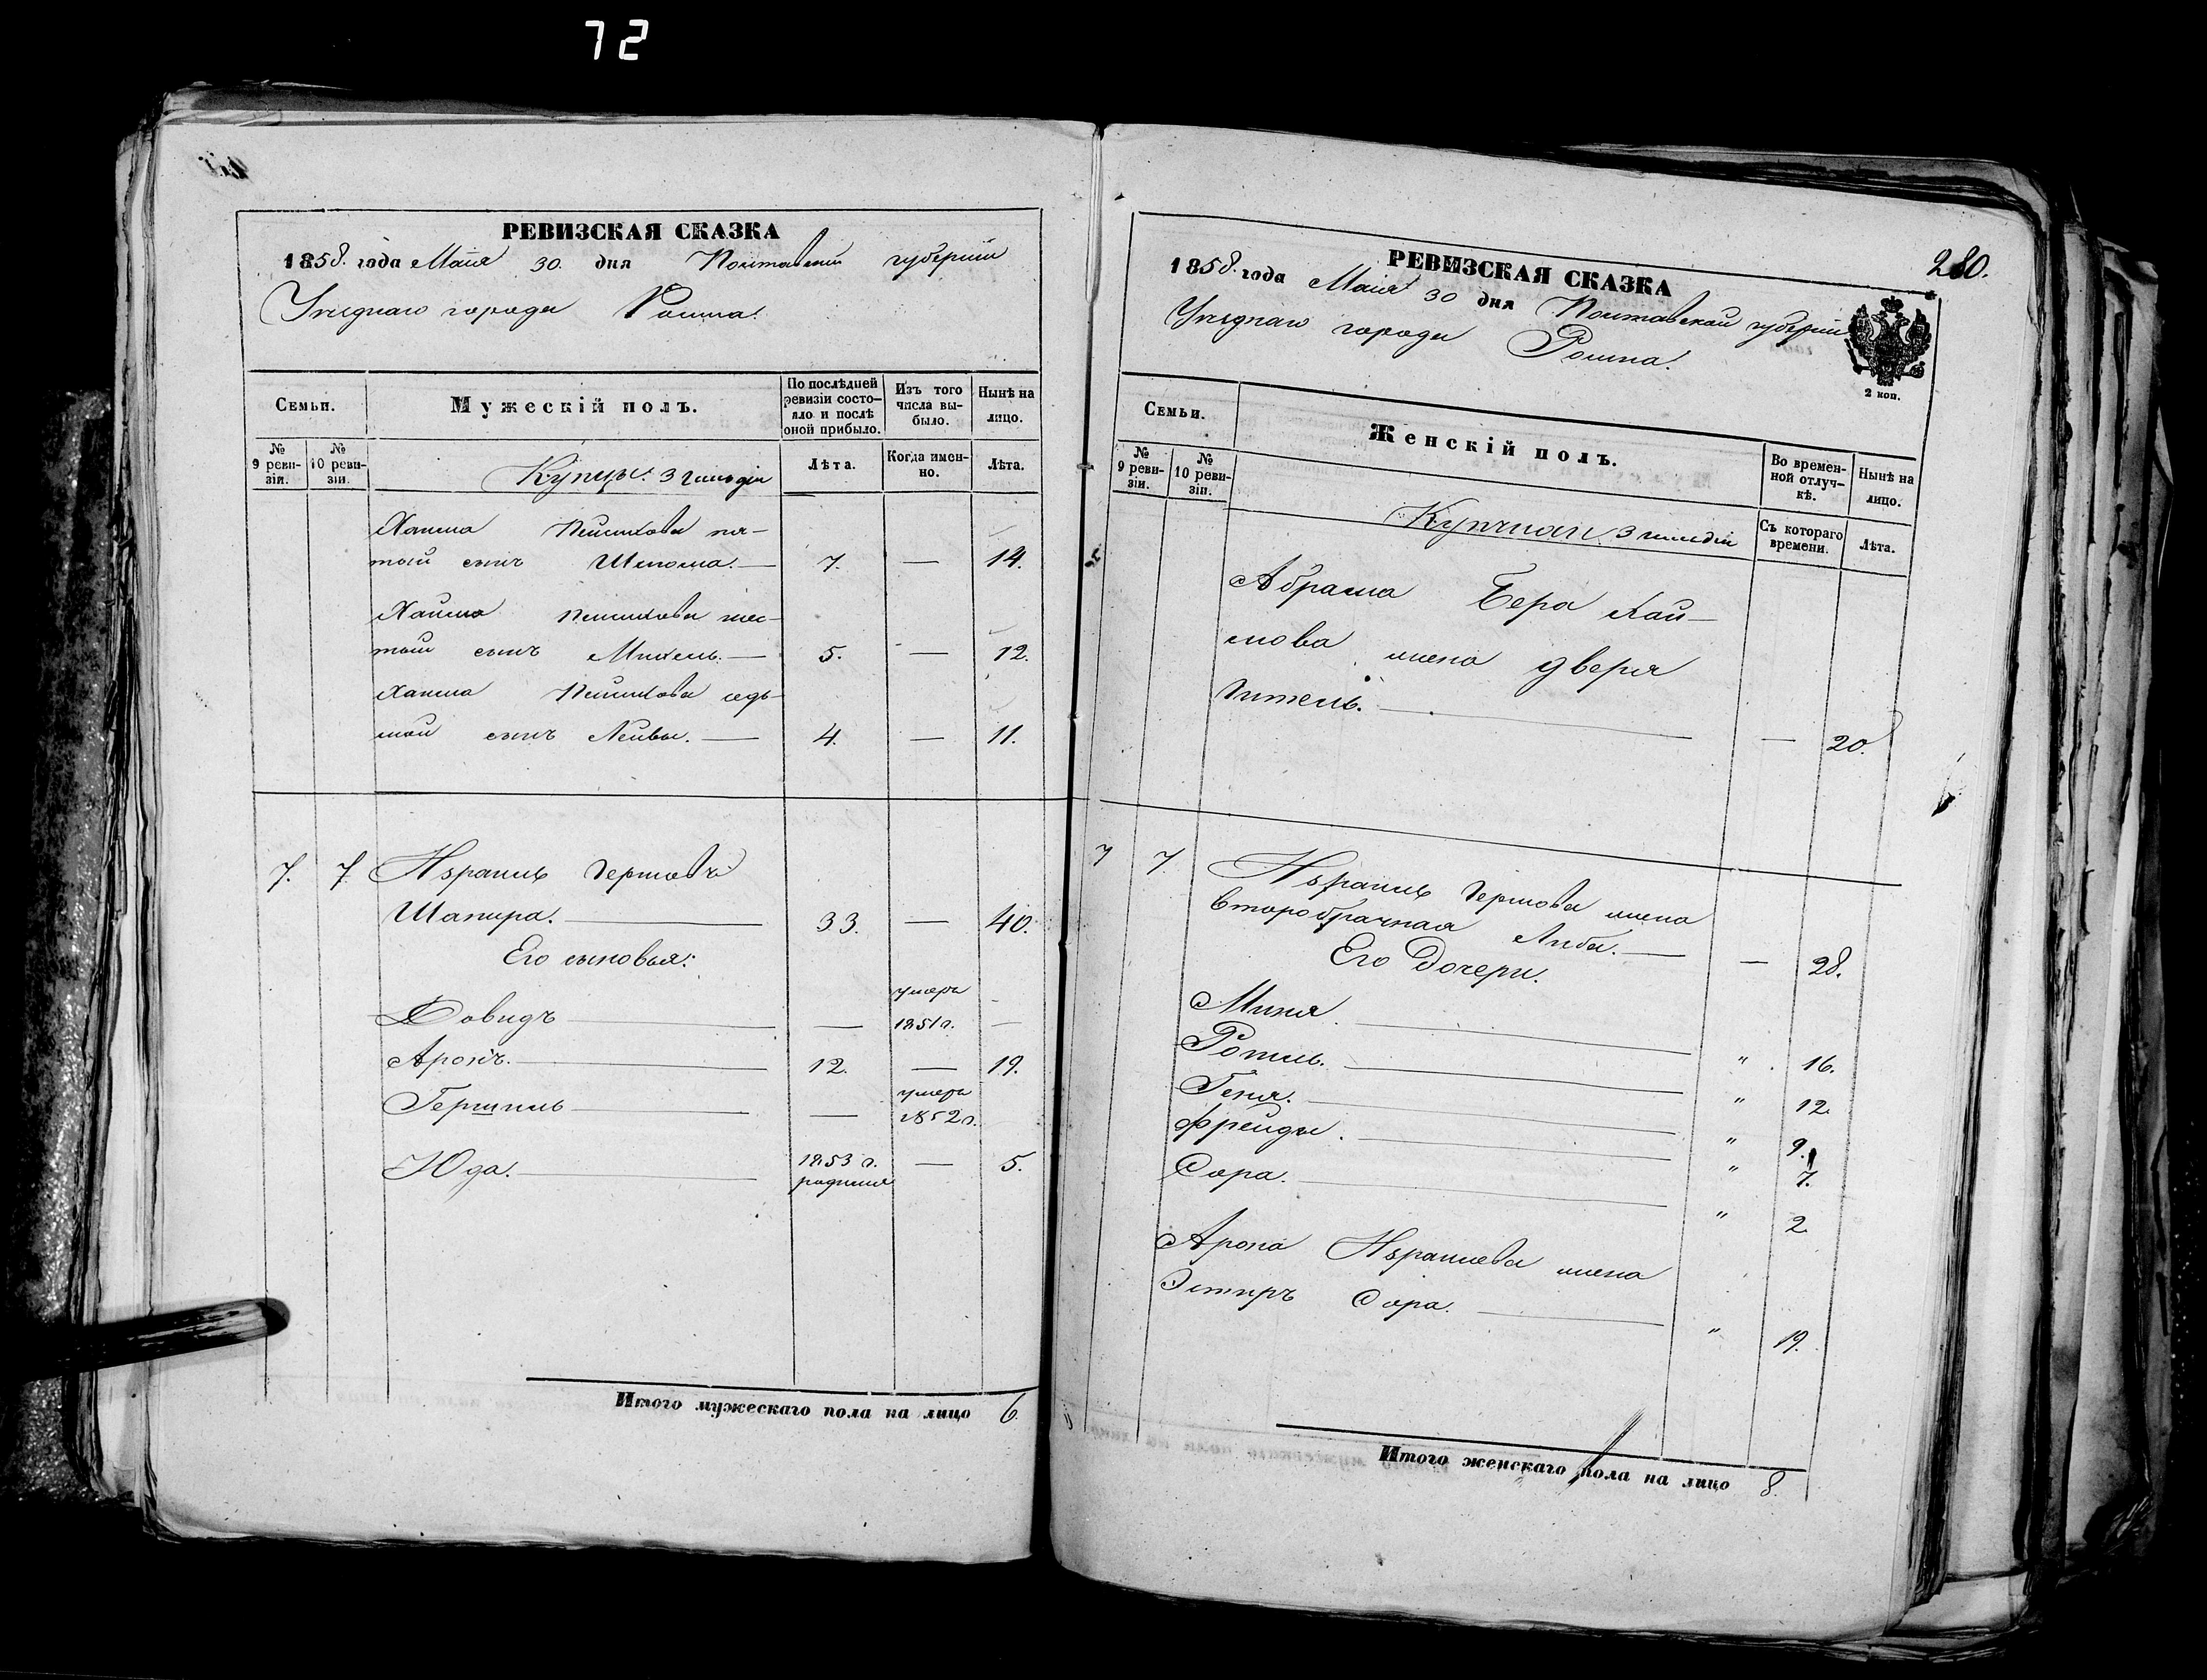 72
РЕВИЗСКАЯ СКАЗКА
1858 года Маія 30 дня Полтавской губерніи
Уѣзднаго города Ромна.
Семьи.
Мужескій полъ.
По послѣдней ревизіи состояло и послѣ оной прибыло.
Изъ того числа выбыло.
Нынѣ на лицо.
№ 9 ревизіи.
№ 10 ревизіи.
Купцы 3 гильдіи
Лѣта.
Когда именно.
Лѣта.
Хаима
пя-
тый сынъ Шлиома. — 7. — 14.
Хаима
шес-
тый сынъ Михель. — 5. — 12.
Хаима
седь-
мой сынъ Лейвы. — 4. — 11.
7. 7 Израиль Гершовъ
Шапира. — 33. — 40.
Его сыновья:
Довидъ — — умеръ 1851 г. —
Аронъ. — 12. — 19.
Гершель — — умеръ 1852 г.
Юда. — 1853 г. родился — 5.
Итого мужескаго пола на лицо 6.
280.
РЕВИЗСКАЯ СКАЗКА
1858 года Маія 30 дня Полтавской губерніи
Уѣзднаго города Ромна.
2 коп.
Семьи.
Женскій полъ.
Во временной отлучкѣ.
Нынѣ на лицо.
№ 9 ревизіи.
№ 10 ревизіи.
3 гильдіи
Съ котораго времени.
Лѣта.
Абрама Бера Хаи-
мова жена Двера
Гитель. — — 20.
7 7. Израиль Гершова жена
второбрачная Либа. — — 28.
Его Дочери.
Миня. — " 16.
Рохиль. — " 12.
Геня. — " 9.
Фрейды. — " 7.
Сора. — " 2
Арона Израилева жена
Эстиръ Сора. — " 19.
Итого женскаго пола на лицо 8.